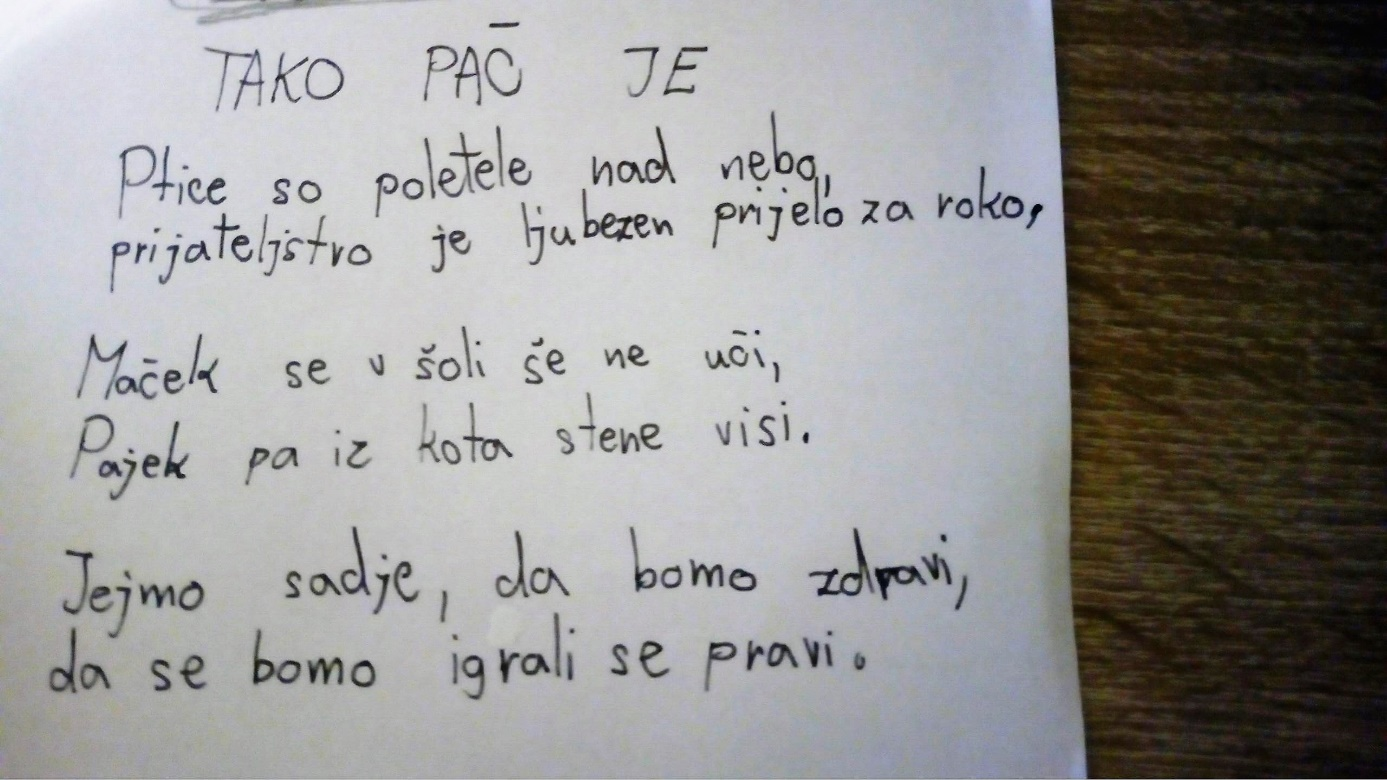 TAKO PAČ JE
Ptice so poletele nad nebo,
prijateljstvo je ljubezen prijelo za roko,
Maček se v šoli še ne uči,
Pajek pa iz kota stene visi.
Jejmo sadje, da bomo zdravi,
da se bomo igrali se pravi.